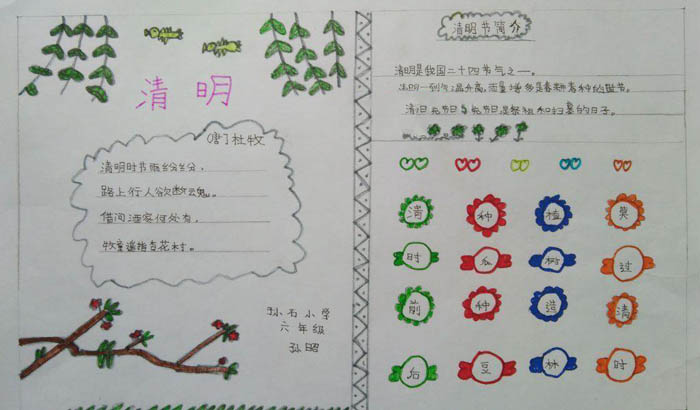 清明
(唐)杜牧
清明时节雨纷纷,
路上行人欲断魂。
借问酒家何处有,
牧童遥指杏花村。
孙石小学
六年级
孙昭
清明节简介
清明是我国二十四节气之一。
清明一到气温升高,雨量增多是春耕春种的时节。
是祭祖和扫墓的日子。
清时前后
种瓜种豆
植树造林
莫过清时